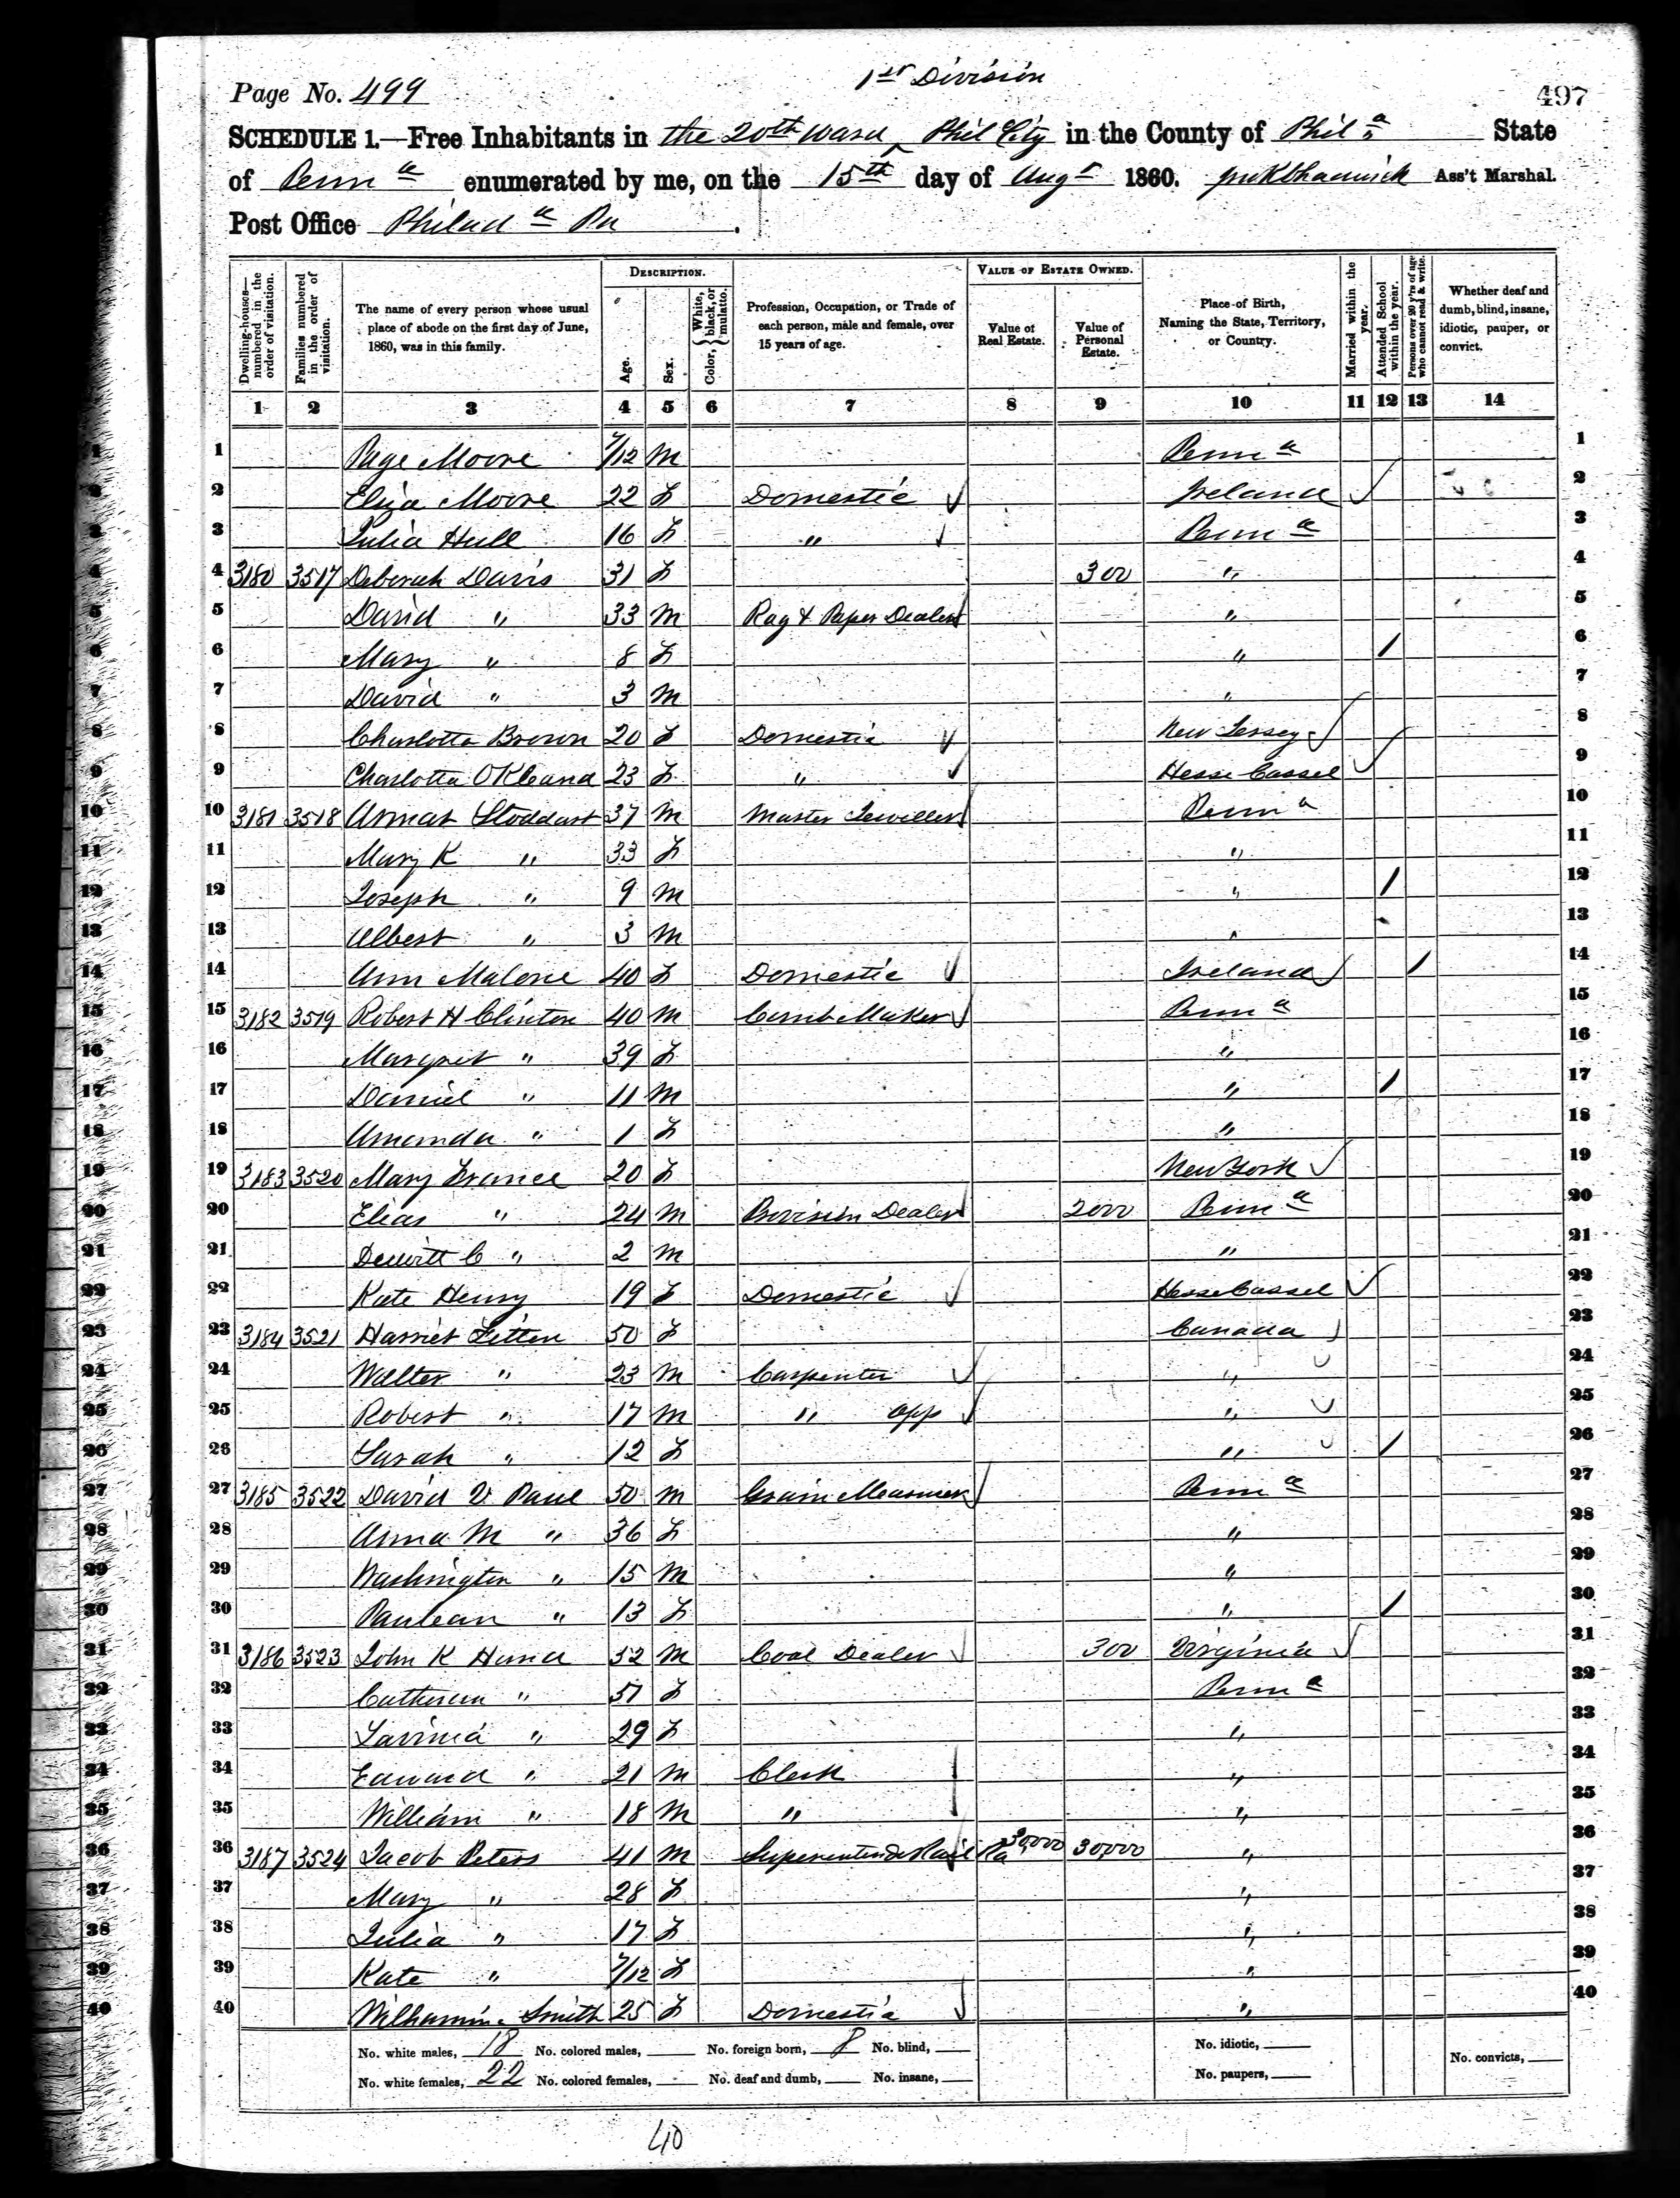 1st Division
Page No. 499
497
SCHEDULE 1.—Free Inhabitants in the 20th Ward Phil City in the County of Phila State
of Penna enumerated by me, on the 15th day of Augt 1860. Ass't Marshal.
Post Office Philada Pa.
DESCRIPTION. VALUE OF ESTATE OWNED.
Dwelling-houses—numbered in the order of visitation. Families numbered in the order of visitation. The name of every person whose usual place of abode on the first day of June, 1860, was in this family. Age. Sex. Color, White, black, or mulatto. Profession, Occupation, or Trade of each person, male and female, over 15 years of age. Value of Real Estate. Value of Personal Estate. Place of Birth, Naming the State, Territory, or Country. Married within the year. Attended School within the year. Persons over 20 y'rs of age who cannot read & write. Whether deaf and dumb, blind, insane, idiotic, pauper, or convict.
1 2 3 4 5 6 7 8 9 10 11 12 13 14
1 Page Moore 7/12 M Penna 1
2 Eliza Moore 22 F Domestic Ireland 2
3 Julia Hull 16 F " Penna 3
4 3180 3517 Deborah Davis 31 F 300 " 4
5 David " 33 M Rag & Paper Dealer " 5
6 Mary " 8 F " / 6
7 David " 3 M " 7
8 Charlotta Brown 20 F Domestic New Jersey 8
9 Charlotta OKleana 23 F " Hesse Cassel 9
10 3181 3518 Armat Stoddart 37 M Master Jeweller Penna 10
11 Mary K " 33 F " 11
12 Joseph " 9 M " / 12
13 Albert " 3 M " 13
14 Ann Malone 40 F Domestic Ireland / 14
15 3182 3519 Robert H Clinton 40 M Comb Maker Penna 15
16 Margret " 39 F " 16
17 Daniel " 11 M " / 17
18 Amanda " 1 F " 18
19 3183 3520 Mary France 20 F New York 19
20 Elias " 24 M Provision Dealer 2000 Penna 20
21 Dewitt C " 2 M " 21
22 Kate Henry 19 F Domestic Hesse Cassel 22
23 3184 3521 Harriet Fitten 50 F Canada 23
24 Walter " 23 M Carpenter " 24
25 Robert " 17 M " app " 25
26 Sarah " 12 F " / 26
27 3185 3522 David V Paul 50 M Grain Measurer Penna 27
28 Anna M " 36 F " 28
29 Washington " 15 M " 29
30 Paulean " 13 F " / 30
31 3186 3523 John K Hand 52 M Coal Dealer 300 Virginia 31
32 Catheren " 51 F Penna 32
33 Lavinia " 29 F " 33
34 Edward " 21 M Clerk " 34
35 William " 18 M " " 35
36 3187 3524 Jacob Peters 41 M Superentend Rail Rd 30,000 30,000 " 36
37 Mary " 28 F " 37
38 Julia " 17 F " 38
39 Kate " 7/12 F " 39
40 Wilhamina Smith 25 F Domestic " 40
No. white males, 18 No. colored males, No. foreign born, 8 No. blind, No. idiotic,
No. white females, 22 No. colored females, No. deaf and dumb, No. insane, No. paupers, No. convicts,
40